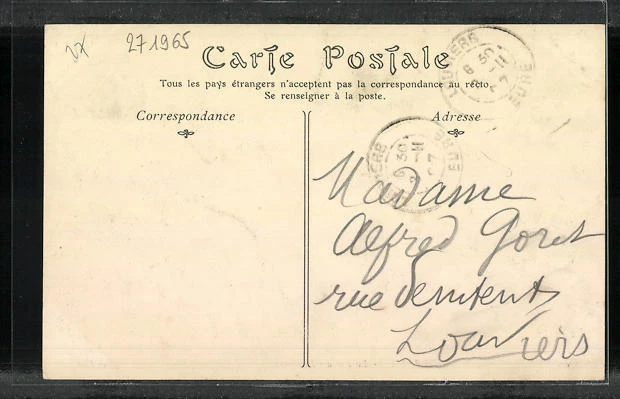 vx 271965
Carte Postale
Tous les pays étrangers n'acceptent pas la correspondance au recto.
Se renseigner à la poste.
Correspondance
Adresse
LOUVIERS EURE
6 30
EURE
6 30
Madame
Alfred Goret
rue Penitents
Louviers